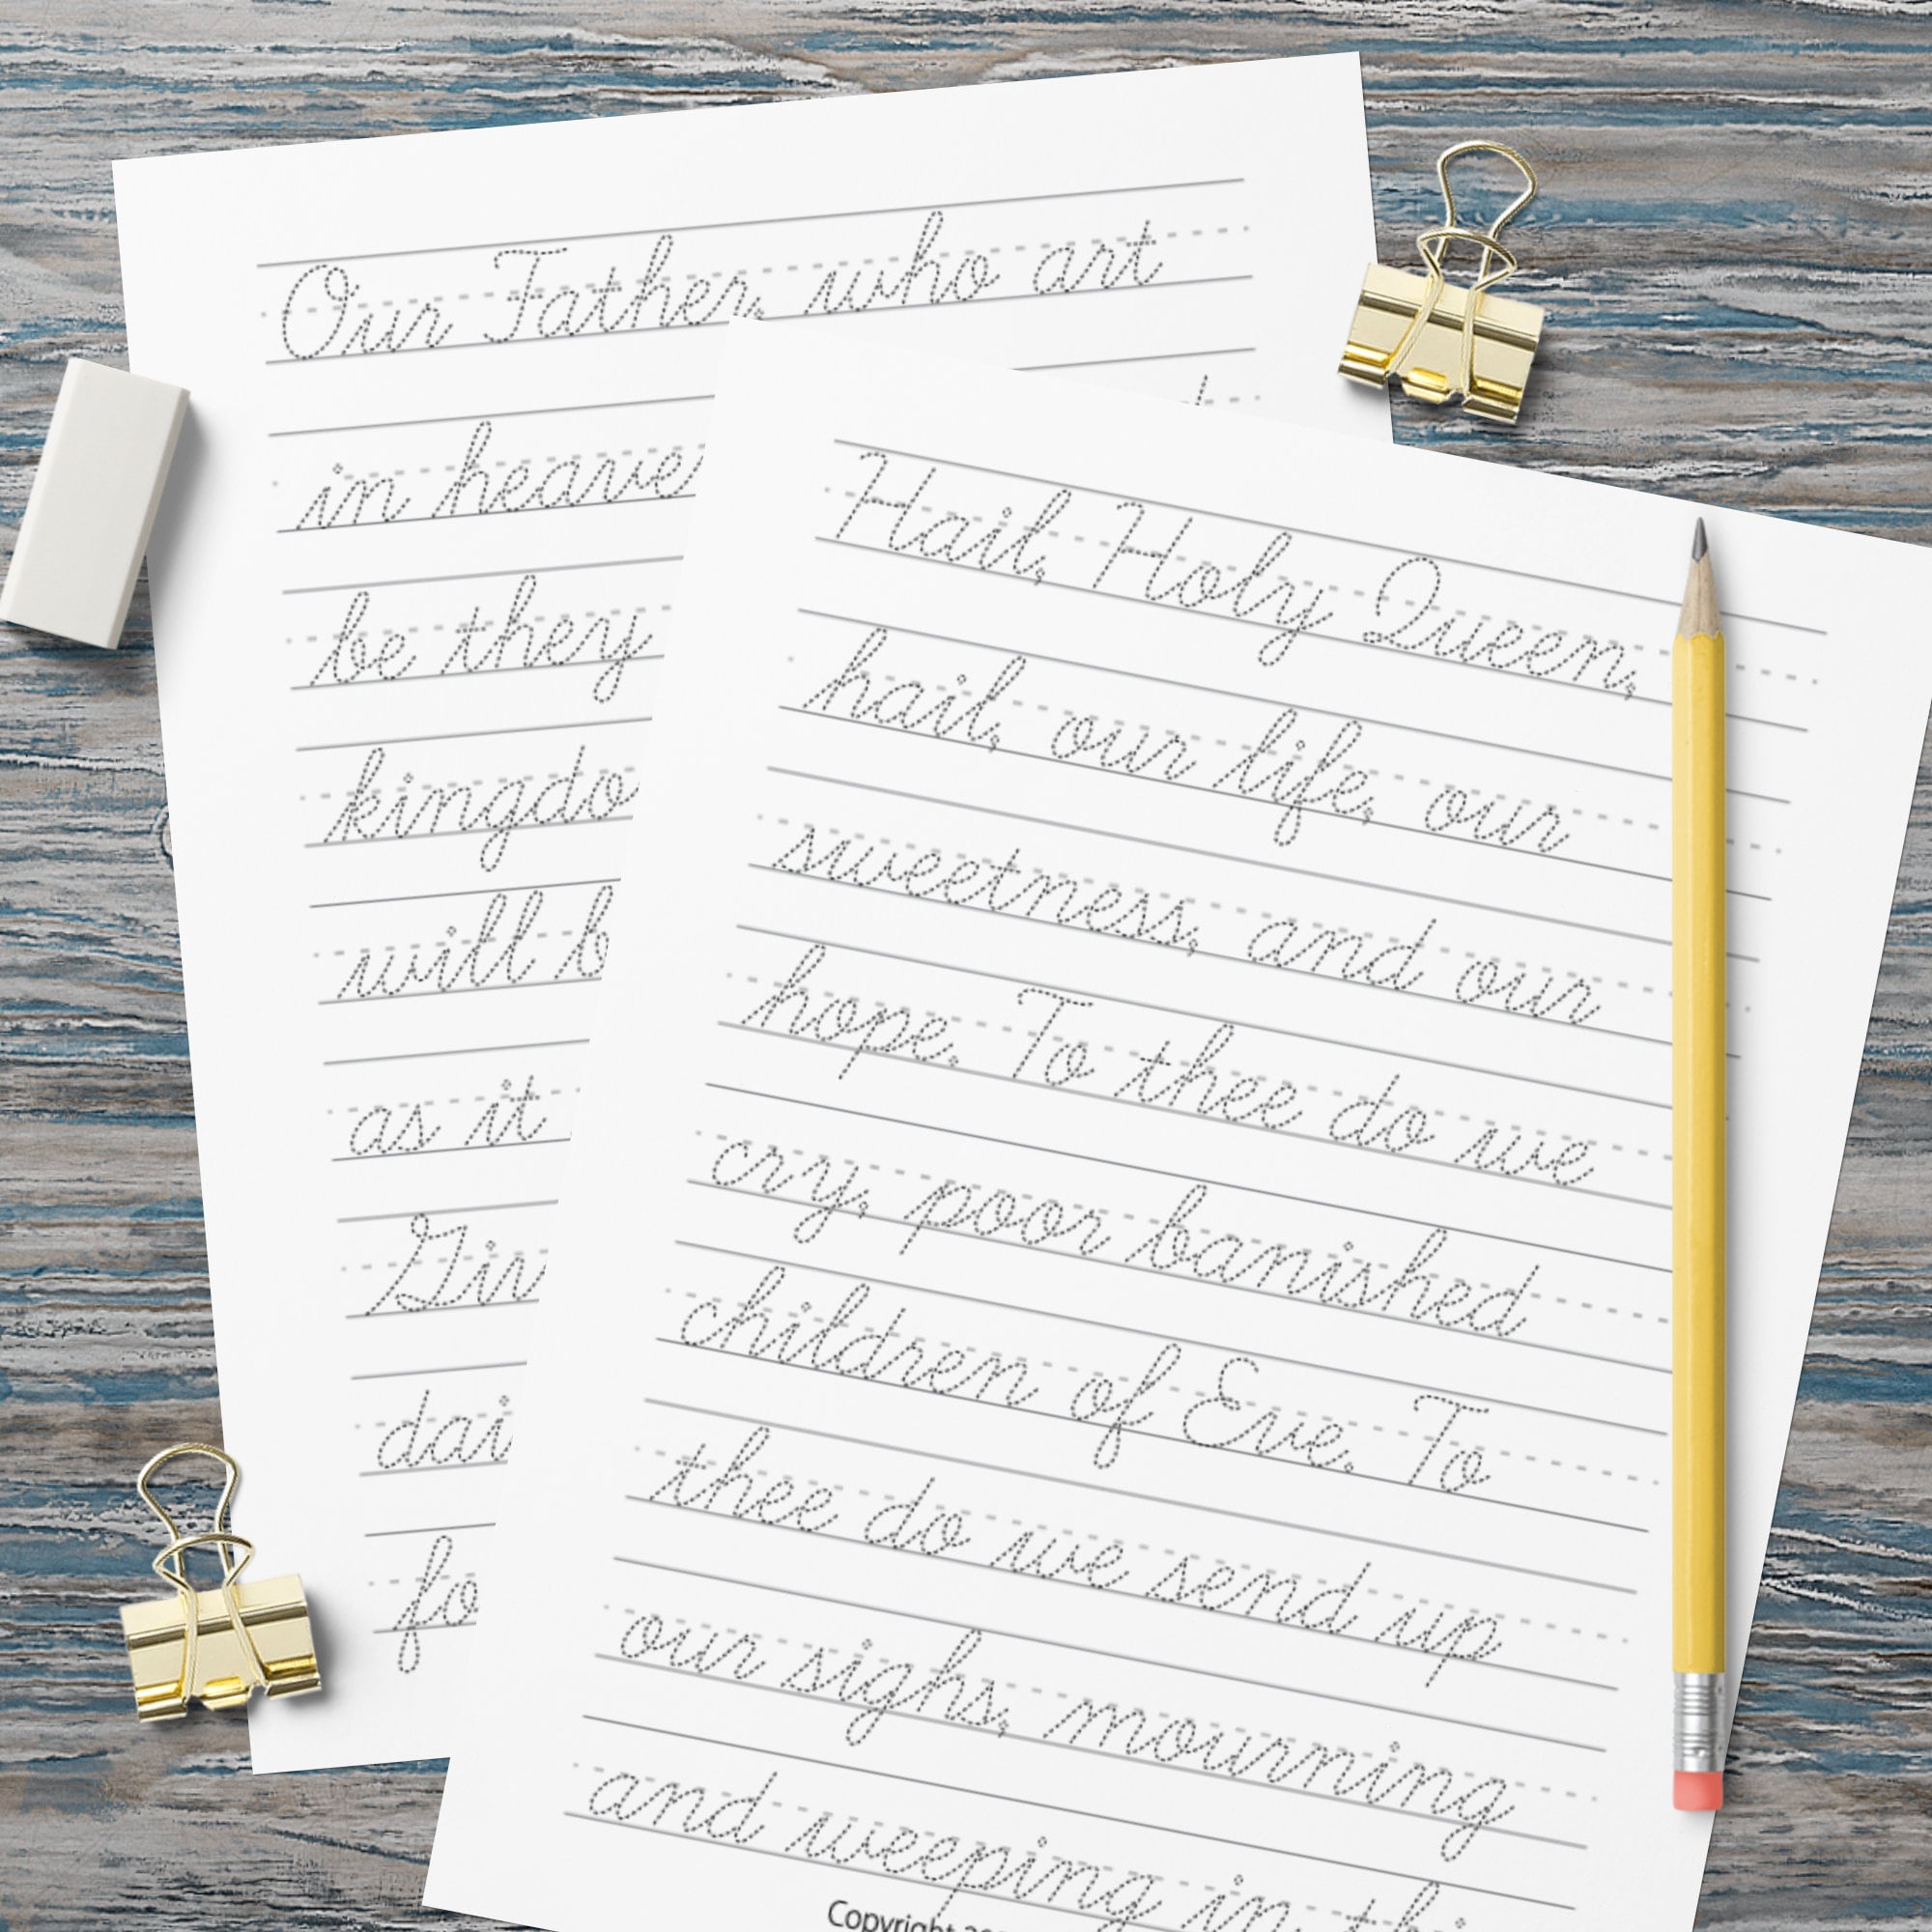 Our Father, who art
in heave
be they
kingdo
will b
as it
Giv
dai
fo
Hail, Holy Queen,
hail, our life, our
sweetness, and our
hope. To thee do we
cry, poor banished
children of Eve. To
thee do we send up
our sighs, mourning
and weeping in thi
Copyright 20